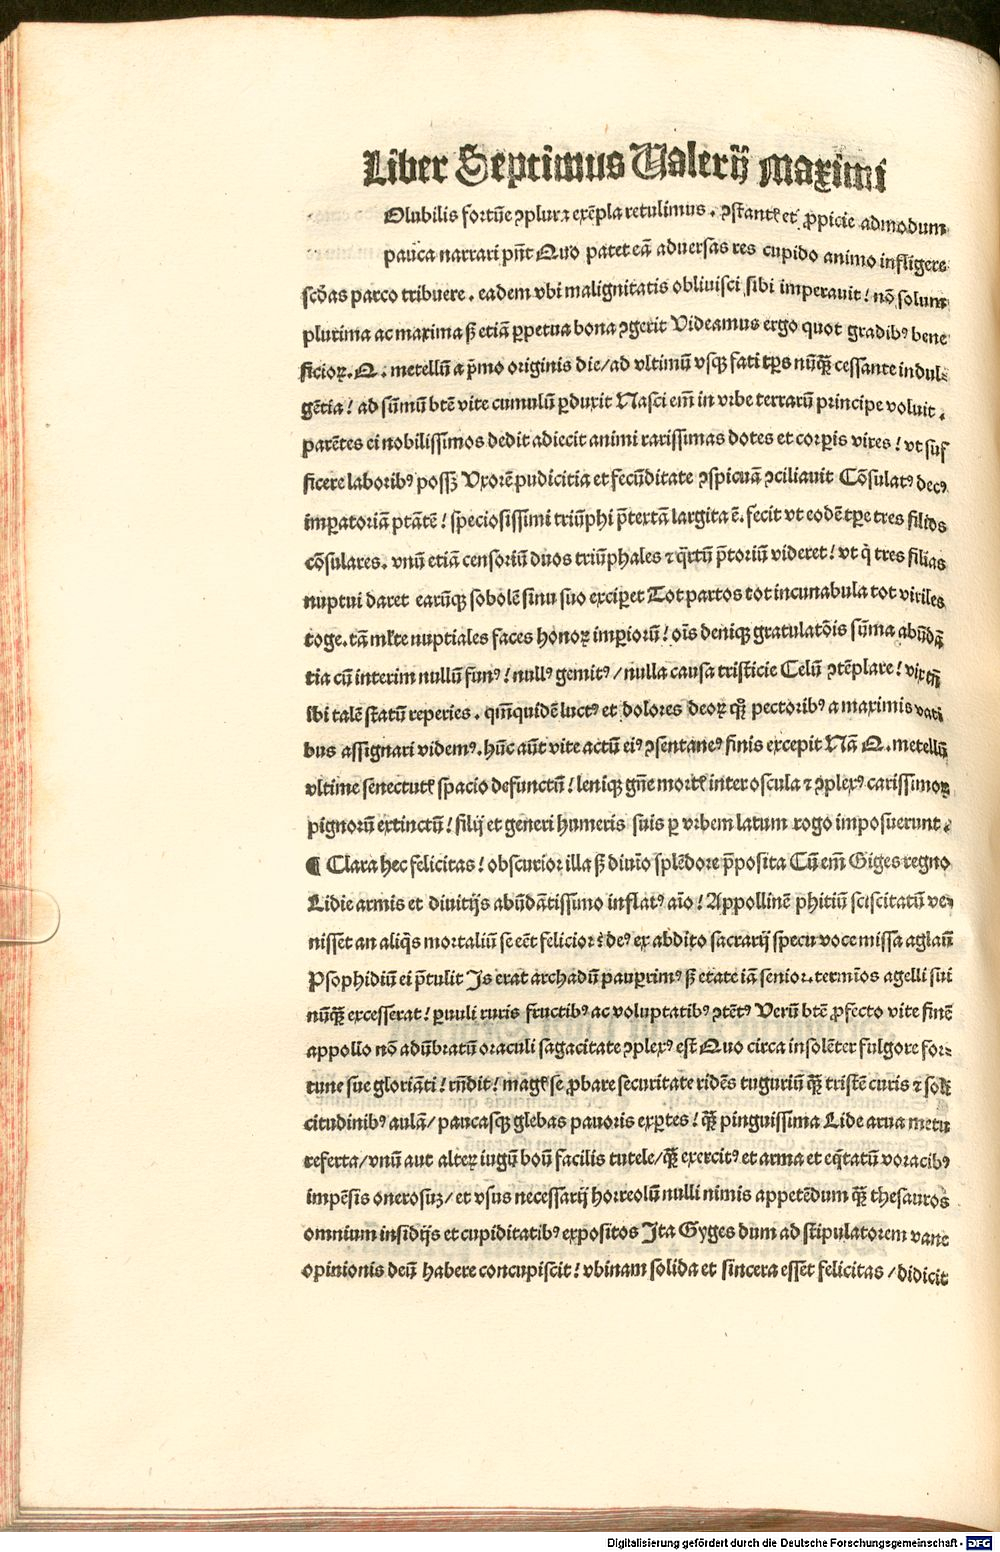 Liber Septimus Valerij Maximi
Olubilis fortũe ꝯplura exẽpla retulimus . ꝯstantẽ et ꝓpicie admodum
pauca narrari pñt Quo patet eã aduersas res cupido animo infligere
scđas parco tribuere . eadem vbi malignitatis obliuisci sibi imperauit ! nõ solum
plurima ac maxima sꝫ etiã ꝑpetua bona ꝯgerit Videamus ergo quot gradibꝰ bene
ficioꝝ . Q . metellũ a p̃mo originis die / ad vltimũ vsqꝫ fati tp̃s nũqꝫ̃ cessante indul⸗
gẽtia ! ad sũmũ btẽ vite cumulũ ꝑduxit Nasci em̃ in vrbe terrarũ principe voluit .
parẽtes ei nobilissimos dedit adiecit animi rarissimas dotes et corꝑis vires ! vt suf
ficere laboribꝰ possꝫ Vxorẽ pudicitia et fecũditate ꝯspicuã ꝯciliauit Cõsulatꝰ decꝰ
imꝑatoriã ptãtẽ ! speciosissimi triũphi p̃tertã largita ẽ . fecit vt eodẽ tꝑe tres filios
cõsulares . vnũ etiã censoriũ duos triũphales ⁊ q̃rtũ p̃toriũ videret ! vt q̃ tres filias
nuptui daret earũqꝫ sobolẽ sinu suo exciꝑet Tot partos tot incunabula tot viriles
toge . tã ml̃te nuptiales faces honoꝝ imꝑiorũ ! oĩs deniqꝫ gratulatõis sũma abũdã
tia cũ interim nullũ funꝰ ! nullꝰ gemitꝰ / nulla causa tristicie Celũ ꝯtẽplare ! vix tñ
ibi talẽ statũ reperies . qm̃quidẽ luctꝰ et dolores deoꝝ qꝫ̃ pectoribꝰ a maximis vati
bus assignari videmꝰ . hũc aũt vite actũ eiꝰ ꝯsentaneꝰ finis excepit Nã Q . metellũ
vltime senectutꝭ spacio defunctũ ! leniqꝫ gñe mortꝭ inter oscula ⁊ ꝯplexꝰ carissimoꝝ
pignorũ extinctũ ! filij et generi humeris suis ꝑ vrbem latum rogo imposuerunt .
¶ Clara hec felicitas ! obscurior illa sꝫ diuĩo splẽdore p̃posita Cũ em̃ Giges regno
Lidie armis et diuitijs abũdãtissimo inflatꝰ aĩo ! Appollinẽ phitiũ sciscitatũ ve⸗
nisset an aliq̃s mortaliũ se eẽt felicior : deꝰ ex abdito sacrarij specu voce missa aglaũ
Psophidiũ ei p̃tulit Is erat archadũ pauꝑrimꝰ sꝫ etate iã senior . termĩos agelli sui
nũqꝫ̃ excesserat ! ꝑuuli ruris fructibꝰ ac voluptatibꝰ ꝯtẽtꝰ Verũ btẽ ꝓfecto vite finẽ
appollo nõ adũbratũ oraculi sagacitate ꝯplexꝰ est Quo circa insolẽter fulgore for⸗
tune sue gloriãti ! rñdit ! magꝭ se ꝓbare securitate ridẽs tuguriũ qꝫ̃ tristẽ curis ⁊ soll
citudinibꝰ aulã / paucasqꝫ glebas pauoris exꝑtes ! qꝫ̃ pinguissima Lide arua metu
referta / vnũ aut alteꝝ iugũ boũ facilis tutele / qꝫ̃ exercitꝰ et arma et eq̃tatũ voracibꝰ
impẽsis onerosuꝫ / et vsus necessarij horreolũ nulli nimis appetẽdum qꝫ̃ thesauros
omnium insidijs et cupiditatibꝰ expositos Ita Gyges dum ad stipulatorem vane
opinionis deũ habere concupiscit ! vbinam solida et sincera esset felicitas / didicit
Digitalisierung gefördert durch die Deutsche Forschungsgemeinschaft - DFG